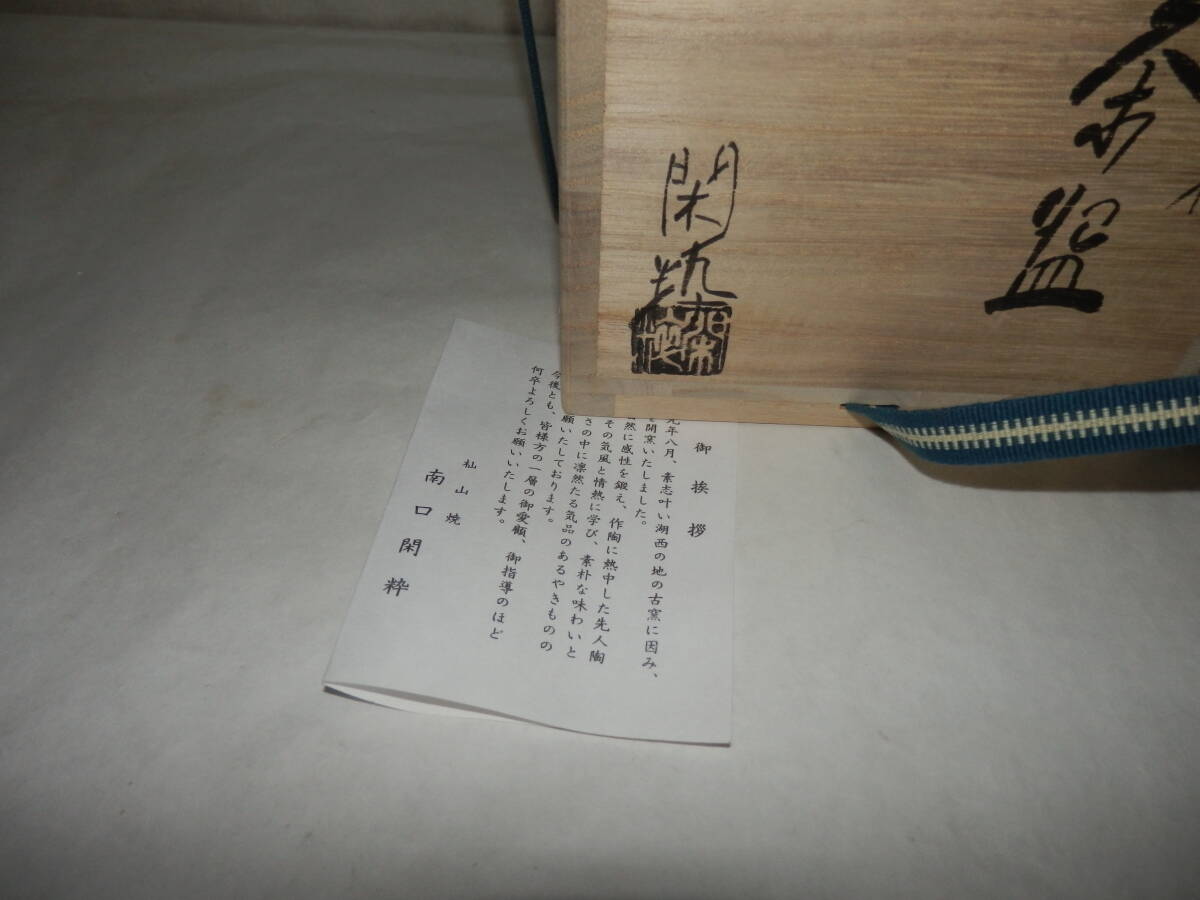 茶盌
閑粋
御挨拶
元年八月、素志叶い湖西の地の古窯に因み、
を開窯いたしました。
然に感性を鍛え、作陶に熱中した先人陶
その気風と情熱に学び、素朴な味わいと
さの中に凛然たる気品のあるやきものの
願いたしております。
今後とも、皆様方の一層の御愛顧、御指導のほど
何卒よろしくお願いいたします。
杣山焼
南口閑粋